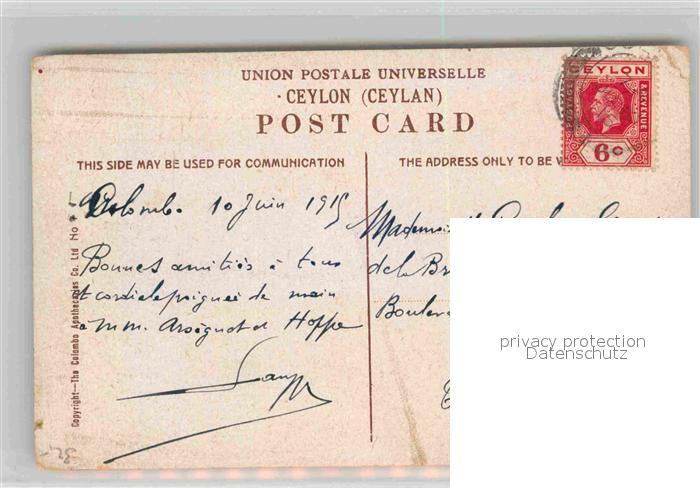 UNION POSTALE UNIVERSELLE
· CEYLON (CEYLAN)
POST CARD
THIS SIDE MAY BE USED FOR COMMUNICATION
THE ADDRESS ONLY TO BE W
CEYLON
POSTAGE
& REVENUE
6c
Colombo 10 Juin 1915
Bonnes amitiés à tous
et cordiale poignée de main
à MM. et Hoppe
Mademoi
de la Br
Boulev
Copyright—The Colombo Apothecaries Co. Ltd No
privacy protection
Datenschutz